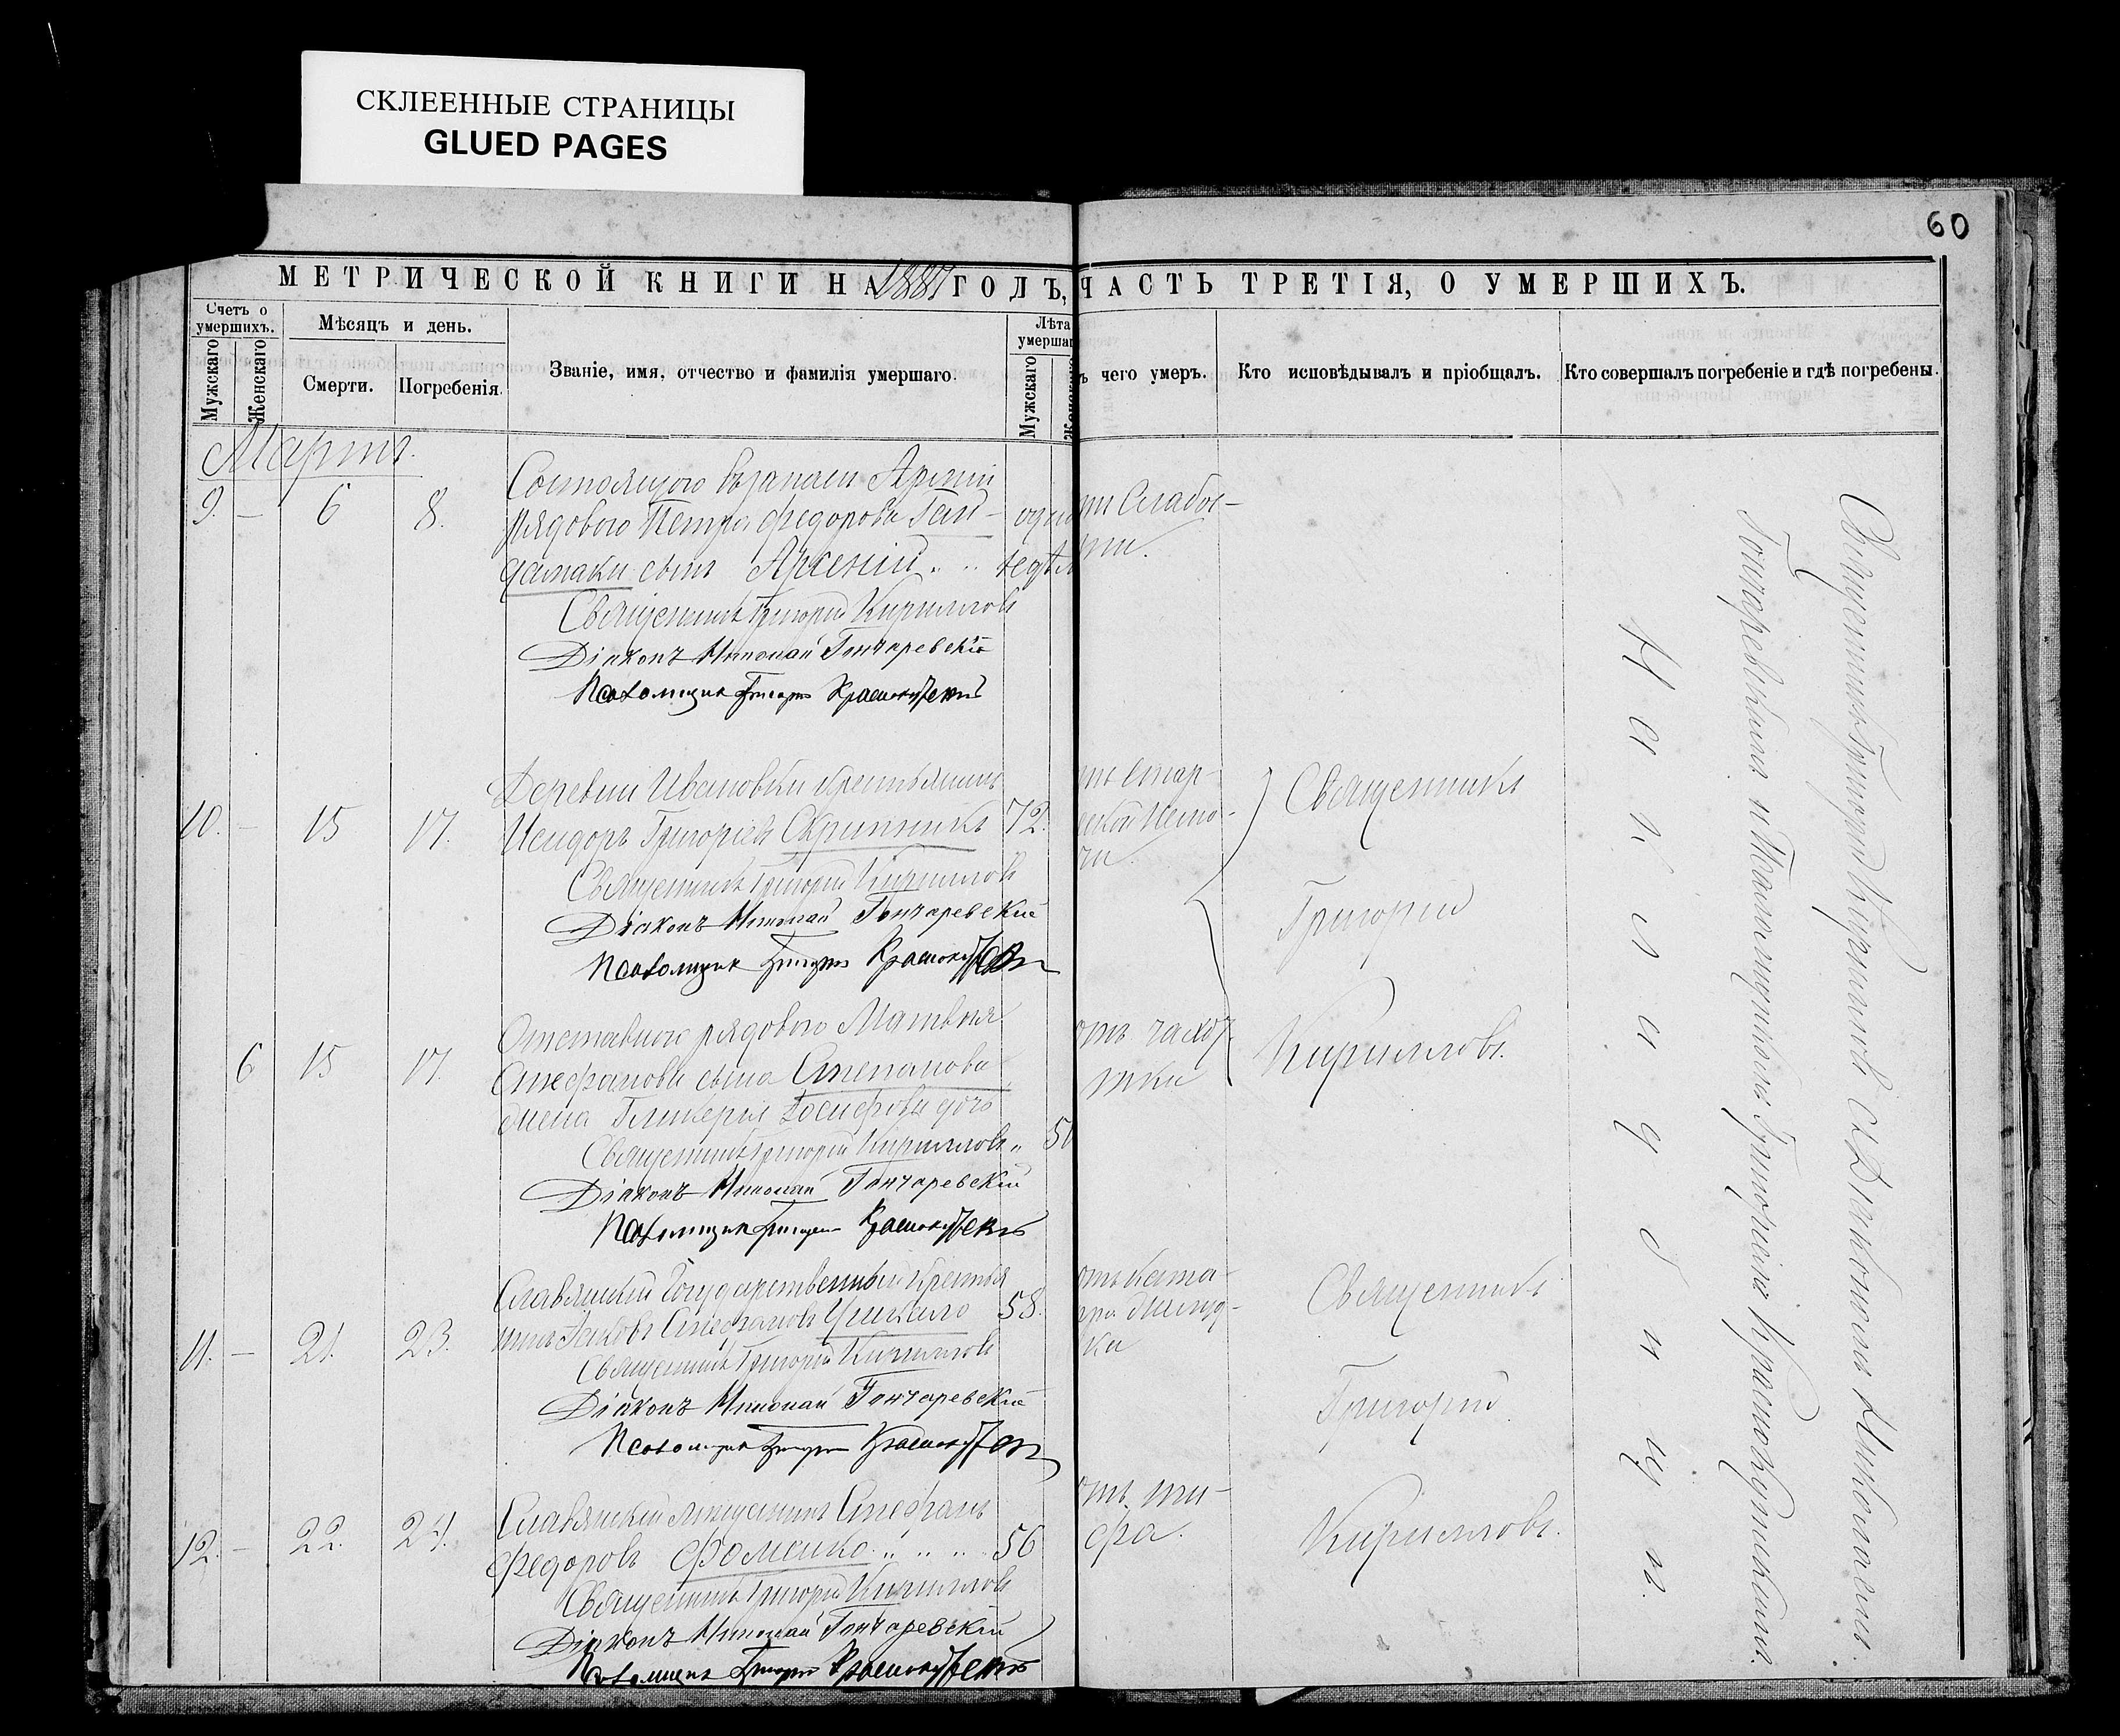 СКЛЕЕННЫЕ СТРАНИЦЫ
GLUED PAGES
60
МЕТРИЧЕСКОЙ КНИГИ НА 1887 ГОДЪ, ЧАСТЬ ТРЕТІЯ, О УМЕРШИХЪ.
Счетъ о умершихъ.
Мужскаго
Женскаго
Мѣсяцъ и день.
Смерти.
Погребенія.
Званіе, имя, отчество и фамилія умершаго.
Лѣта
умершаг
Мужскаго
ъ чего умеръ.
Кто исповѣдывалъ и пріобщалъ.
Кто совершалъ погребеніе и гдѣ погребены.
Мартъ.
9. — 6 8.
Состоящаго въ запасѣ Арміи
рядового Петра Федорова Гай-
дамаки сынъ Арсеній
Священникъ Григорій Кирилловъ
Діаконъ Николай Гончаревскій
Псаломщикъ Григорій Краснокутскій
ти слабос-
ти.
10. — 15 17.
Деревни Ивановки крестьянинъ
Исидоръ Григорьевъ Скрипникъ 72.
Священникъ Григорій Кирилловъ
Діаконъ Николай Гончаревскій
Псаломщикъ Григорій Краснокутскій
6 15 17.
Отставного рядового Матвѣя
Стефанова сына Степанова
жена Гликерія Іосифова дочь
Священникъ Григорій Кирилловъ
Діаконъ Николай Гончаревскій
Псаломщикъ Григорій Краснокутскій
отъ чахот
тки
Священникъ
Григорій
Кирилловъ.
11. — 21. 23.
Славянскій Государственный крестья
нинъ Іаковъ Стефановъ 58.
Священникъ Григорій Кирилловъ
Діаконъ Николай Гончаревскій
Псаломщикъ Григорій Краснокутскій
12. — 22. 24.
Славянскій мѣщанинъ Стефанъ
Федоровъ Фоменко 56
Священникъ Григорій Кирилловъ
Діаконъ Николай Гончаревскій
Псаломщикъ Григорій Краснокутскій
отъ ти-
фа.
Священникъ
Григорій
Кирилловъ.
Священникъ Григорій Кирилловъ съ Діакономъ Николаемъ
Гончаревскимъ и Псаломщикомъ Григоріемъ Краснокутскимъ.
На кладбищѣ.